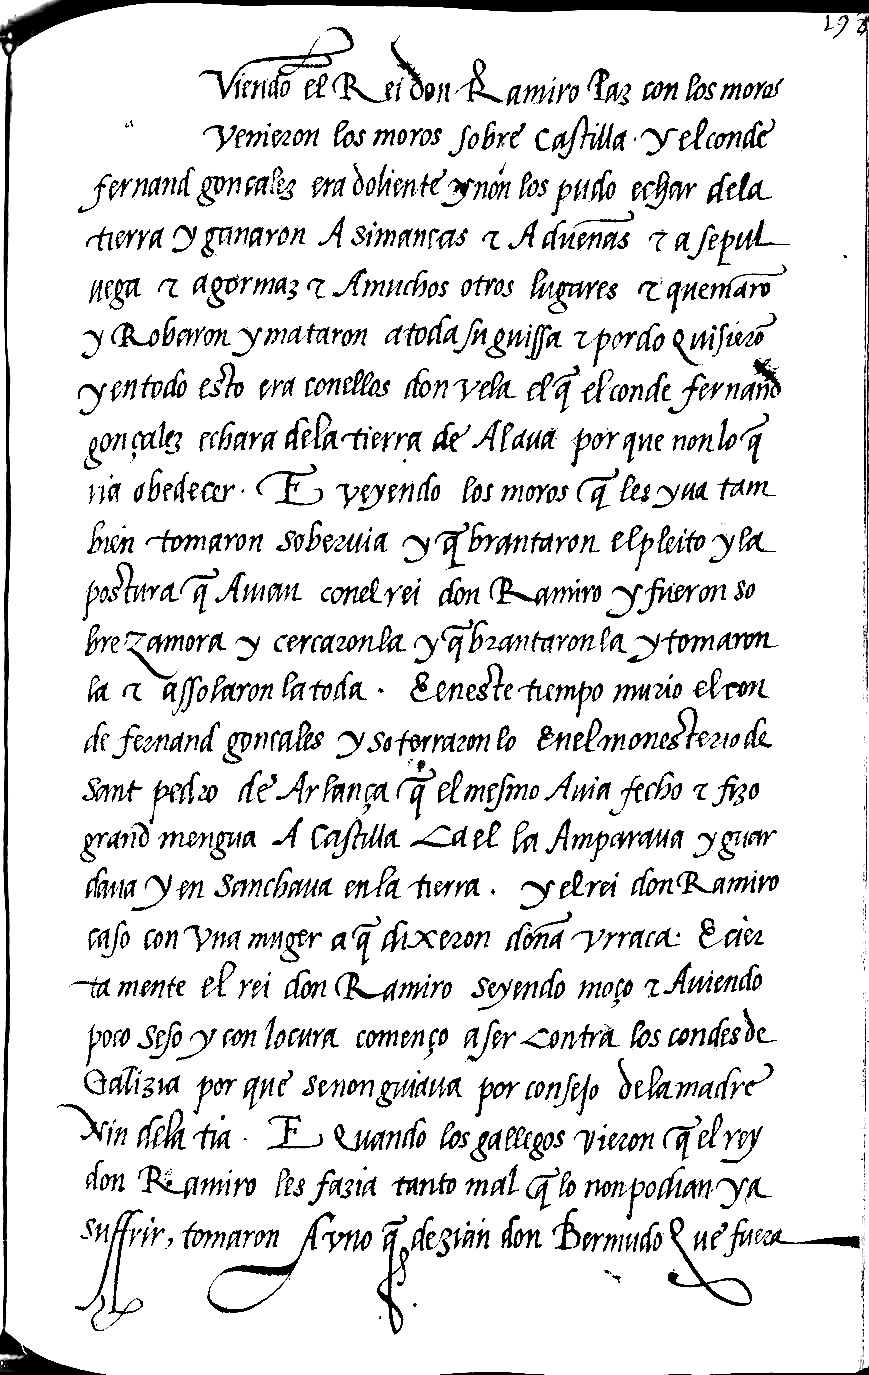 198
Viendo el Rei don Ramiro Paz con los moros
Venieron los moros sobre Castilla · Y el conde
fernand gonçalez era doliente y non los pudo echar dela
tierra y ganaron A simancas τ A dueñas τ a sepul
uega τ a gormaz τ A muchos otros lugares τ quemarō
y Robaron y mataron a toda su guissa τ por do quisierō
y en todo esto era con ellos don vela el q̄ el conde fernand
gonçalez echara dela tierra de Alaua por que non lo q̄
ria obedecer · E veyendo los moros q̄ les yua tam
bien tomaron soberuia y q̄brantaron el pleito y la
postura q̄ Auian conel rei don Ramiro y fueron so
bre zamora y cercaronla y q̄brantaronla y tomaron
la τ assolaron la toda · E eneste tiempo murio el con
de fernand gonçales y soterraron lo En el monesterio de
sant pedro de Arlança q̄ el mesmo Auia fecho τ fizo
grand mengua A Castilla Ca el la Amparaua y guar
daua y en sanchaua en la tierra · y el rei don Ramiro
caso con vna muger a q̄ dixeron doña vrraca · E cier
ta mente el rei don Ramiro seyendo moço τ Auiendo
poco seso y con locura començo a ser contra los condes de
Galizia por que se non guiaua por consejo dela madre
Nin dela tia · E Quando los gallegos vieron q̄ el rey
don Ramiro les fazia tanto mal q̄ lo non podian ya
suffrir, tomaron A vno q̄ dezian don Bermudo Que fuera